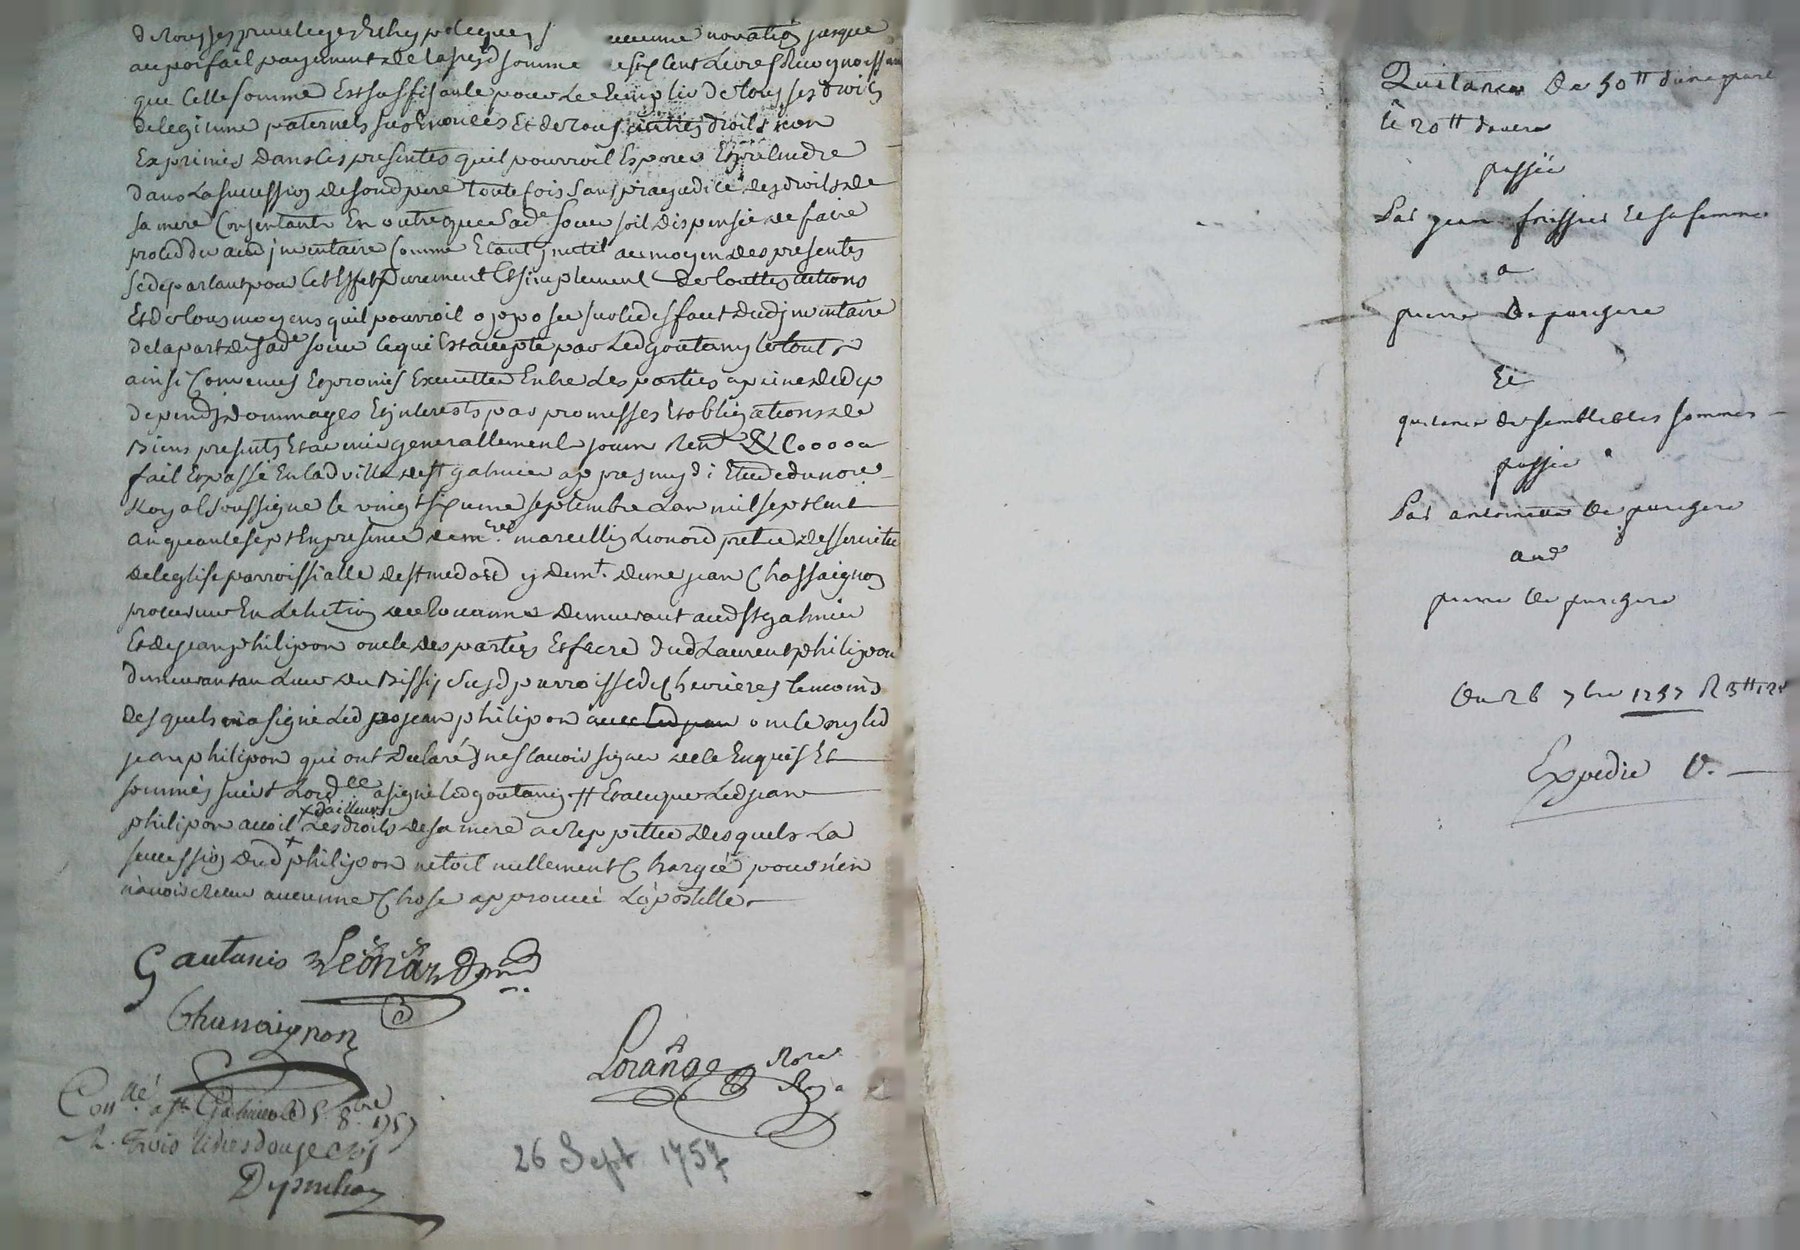 de tous ses privileges et hypoteques s aucune novation jusque
au parfait payement de la susd somme de six cent Livres Recognoissant
que Cette somme Est suffisante pour Le Remplir de tous ses droits
de legitime paternels sus Enoncés Et de tous autres droits non
Exprimés dans les presentes quil pourroit Esperer Et pretendre
dans La succession de sond pere toute fois sans prejudice des droits de
sa mere Consentant En outre que Lade soeur soit dispensée de faire
proceder aud inventaire Comme Etant inutil au moyen des presentes
se departant pour Cet Effet purement Et simplement de touttes actions
Et de tous moyens quil pourroit oposer sur le deffaut dud inventaire
de la part de sade soeur Ce qui Est accepté par Led goutany le tout
ainsi Convenus Et promis Executter Entre Les parties a peine de
depends dommages Et interests par promesses Et obligations de
Biens presents Et avenir generallement soum Ren &C
fait Et passé En lad ville de st galmier apres mydi Etude du nore
Royal soussigné le vingt six eme septembre Lan mil sept Cent
cinquante sept En presence de mre marcellin Leonard pretre desserviteur
de leglise parroissialle de st medard y demt. de me jean Chassaignon
procureur En Lelection de Roanne demeurant aud st galmier
Et de jean philipon oncle des parties Et frere dud Laurent philipon
demeurant au Lieu du Bissy susd parroisse de Chevrieres temoins
des quels n'a signé Led jean philipon oncle ny led
jean philipon qui ont declaré ne scavoir signer de ce Enquis Et
sommés suivt Lordce a signé led goutany # Et a ce que Led jean
d'ailleurs
philipon avoit Les droits de sa mere a Repetter desquels La
succession dud philipon n'etoit nullement Chargée pour n'en
n'avoir Receu aucunne Chose approuvé L'apostille
Gautanis Leonard
Chassaignon
Lorange Nore Royal
Conllé a st Galmier le 5 8bre 1757
R. trois livres douze s
26 Sept 1757
Quitance De 50 tt d'une part
Et 20 tt d'autre
passée
Par jean frissier Et sa femme
a
pierre De parizere
Et
quitance de semblables sommes
passée
Par antoinette De parizere
aud
pierre De parizere
Du 26 7bre 1757 R 3 tt 12 s
Expedié V.